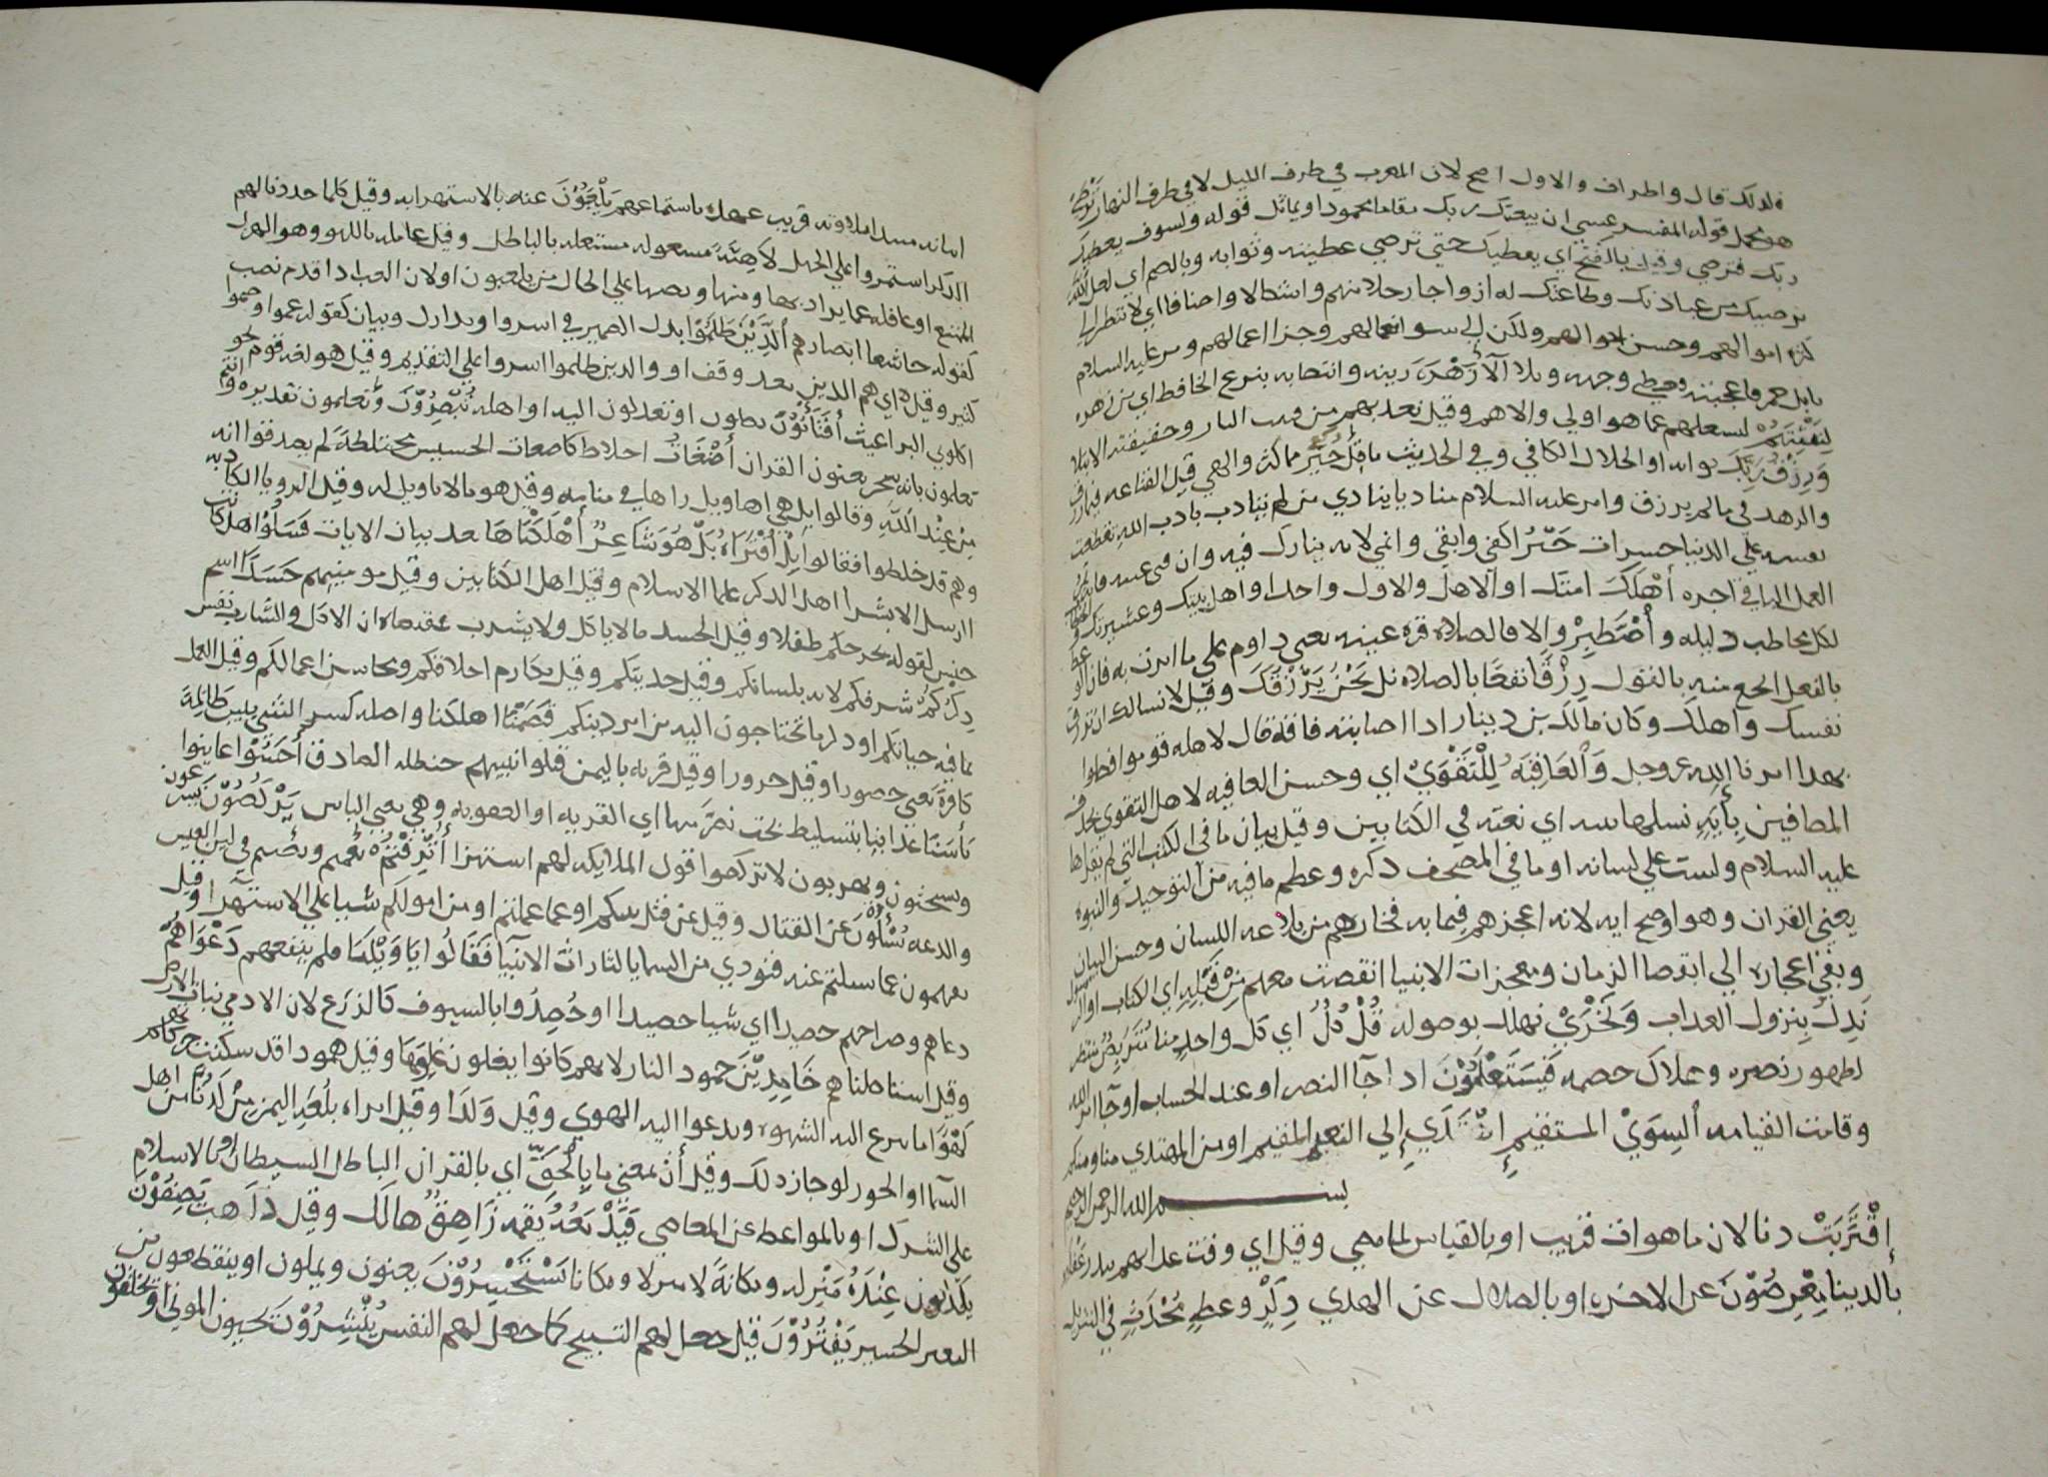 فلذلك قال واطراف والاول اصح لان المغرب في طرف الليل لا في طرف النهار تَرْضَى
هو محمل قوله المفسر عسى ان يبعثك ربك مقاما محمودا ويماثل قوله ولسوف يعطيك
ربك فترضى وقيل بالفتح اي يعطيك حتى ترضى عطيته وثوابه وبالضم اي لعل الله
يرضيك من عبادتك وطاعتك له ازواجا رجلا منهم واشكالا واصنافا اي لا تنظر الى
كثرة اموالهم وحسن احوالهم ولكن الى سوء افعالهم وجزا اعمالهم ومر عليه السلام
بابل فاعجبته فغطى وجهه وتلا الآية زَهْرَةَ زينة وانتصابه بنزع الخافض اي من زهرة
لِنَفْتِنَهُمْ لنشغلهم عما هو اولى والاهم وقيل نعذبهم من فتنت النار وحقيقته الابتلا
وَرِزْقُ رَبِّكَ ثوابه او الحلال الكافي وفي الحديث ما قل خَيْرٌ مما كثر والهى قيل القناعة فيما رزق
والزهد في ما لم يرزق وامر عليه السلام مناديا ينادي من لم يتادب بادب الله تقطعت
نفسه على الدنيا حسرات خَيْرٌ اكفى وابقى واغنى لانه يبارك فيه وان فنى عينه فانه
العمل الباقي اجره أَهْلَكَ امتك او الاهل والاول واحد او اهل بيتك وعشيرتك
لكل مخاطب دليله وَاصْطَبِرْ والا فالصلاة قرة عينه يعني داوم على ما امرت به فان الوعظ
بالفعل انجع منه بالقول رِزْقًا نفعا بالصلاة بل نَحْنُ نَرْزُقُكَ وقيل لا نسالك ان ترزق
نفسك واهلك وكان مالك بن دينار اذا اصابته فاقة قال لاهله قوموا فصلوا
بهذا امرنا الله عز وجل وَالْعَاقِبَةُ لِلتَّقْوَى اي وحسن العاقبة لاهل التقوى بحذف
المضافين بِآيَةٍ نسلمها بينة اي نعته في الكتابين وقيل بيان ما في الكتب التي لم يقراها
عليه السلام وليست على لسانه او ما في المصحف ذكره وعظم ما فيه من التوحيد والنبوة
يعني القران وهو اوضح اية لانه اعجزهم فيما به فخارهم من بلاغة اللسان وحسن البيان
وبقى اعجازه الى انقضا الزمان ومعجزات الانبيا انقضت معهم مِنْ قَبْلِهِ اي الكتاب او الرسول
نَذِلَّ بنزول العذاب وَنَخْزَى نهلك بوصوله قُلْ كُلٌّ اي كل واحد منا مُتَرَبِّصٌ منتظر
لظهور نصره وهلاك خصمه فَسَتَعْلَمُونَ اذا جا النصر او عند الحساب او جا امر الله
وقامت القيامة السَّوِيِّ المستقيم اهْتَدَى الى النعيم المقيم او من المهتدي منا ومنكم
بسم الله الرحمن الرحيم
اِقْتَرَبَتْ دنا لان ما هو ات قريب او بالقياس لما مضى وقيل اي وقت عذابهم ببدر غفلة
بالدنيا مُعْرِضُونَ عن الاخرة او بالضلال عن الهدى ذِكْرٍ وعظ مُحْدَثٍ في التنزيل
يَلْعَبُونَ عنه بالاستهزا به وقيل كلما جددنا لهم
الذكر استمروا على الجهل لَاهِيَةً مشغولة مشتغلة بالباطل وقيل غاملة باللهو وهو الهزل
الممتنع او غافلة عما يراد بها ومنها ونصبها على الحال من يلعبون او لان العباد اذا قدم نصب
كقوله خاشعا ابصارهم الَّذِينَ ظَلَمُوا بدل الضمير في اسروا وبدل وبيان كقوله عموا وصموا
كثير وقيل اي هم الذين بعد وقف او والذين ظلموا اسروا على التقديم وقيل هو لغة قوم نحو
اكلوني البراغيث أَفَتَأْتُونَ تصلون او تعدلون اليه او اهله تُبْصِرُونَ وتعلمون تقديره وانتم
تعلمون بانه سحر يعنون القران أَضْغَاثُ اخلاط كاضغاث الحشيش مختلطة لم يصدقوا انه
مِنْ عِنْدِ اللَّهِ وقالوا بل هي اهاويل راها في منامه وقيل هو ما لا تاويل له وقيل الرويا الكاذبة
وهم قد خلطوا فقالوا بَلِ افْتَرَاهُ بَلْ هُوَ شَاعِرٌ أَهْلَكْنَاهَا بعد بيان الايات فَسْأَلُوا اهل كتاب
ارسل الا بشرا اهل الذكر علما الاسلام وقيل اهل الكتابين وقيل مومنيهم جَسَدًا اسم
جنس لقوله نخرجكم طفلا وقيل الجسد ما لا ياكل ولا يشرب
ذِكْرُكُمْ شرفكم لانه بلسانكم وقيل حديثكم وقيل مكارم اخلاقكم ومحاسن اعمالكم وقيل العمل
بما فيه حياتكم او ذكر ما تحتاجون اليه من امر دينكم قَصَمْنَا اهلكنا واصله كسر الشي اليابس ظَالِمَةً
كافرة يعني حصورا وقيل حرورا وقيل قرية باليمن قتلوا نبيهم حنظلة الصادق أَحَسُّوا عاينوا
بَأْسَنَا عذابنا بتسليط بخت نصر مِنْهَا اي القرية او العقوبة وهي معنى الباس يَرْكُضُونَ يسرعون
ويستحثون ويهربون لا تركضوا قول الملائكة لهم استهزا أُتْرِفْتُمْ نعمتم وبُصّرتم في لين العيش
والدعة تُسْأَلُونَ عن القتال وقيل عن قتل نبيكم او عما عملتم او من اموالكم شيا على الاستهزا وقيل
تفهمون عما سئلتم عنه فنودي من السما يا لثارات الانبيا فَقَالُوا يَا وَيْلَنَا فلم ينفعهم دَعْوَاهُمْ
دعاهم وصراخهم حصيدا اي شيا حصيدا او حُصِدُوا بالسيوف كالزرع لان الادمي نبات الارض
وقيل استاصلناهم خَامِدِينَ خمود النار لانهم كانوا يغلون وقيل همودا قد سكنت حركاتهم
لَهْوًا ما يسرع اليه الشهوة ويدعوا اليه الهوى وقيل وَلَدًا وقيل امراة بلغة اليمن مِنْ لَدُنَّا من اهل
السما او الحور لو جاز ذلك وقيل أن بمعنى ما بِالْحَقِّ اي بالقران الباطل الشيطان او بالاسلام
على الشرك او بالمواعظ عن المعاصي فَيَدْمَغُهُ يقمعه زَاهِقٌ هالك وقيل ذاهب تَصِفُونَ
يكذبون عِنْدَهُ منزلة ومكانة لا منزلا ومكانا يَسْتَحْسِرُونَ يعيون ويملون او ينقطعون من
البعير الحسير يَفْتُرُونَ قيل جعل لهم التسبيح كما جعل لهم النفس يُنْشِرُونَ يحيون الموتى او يخلقون